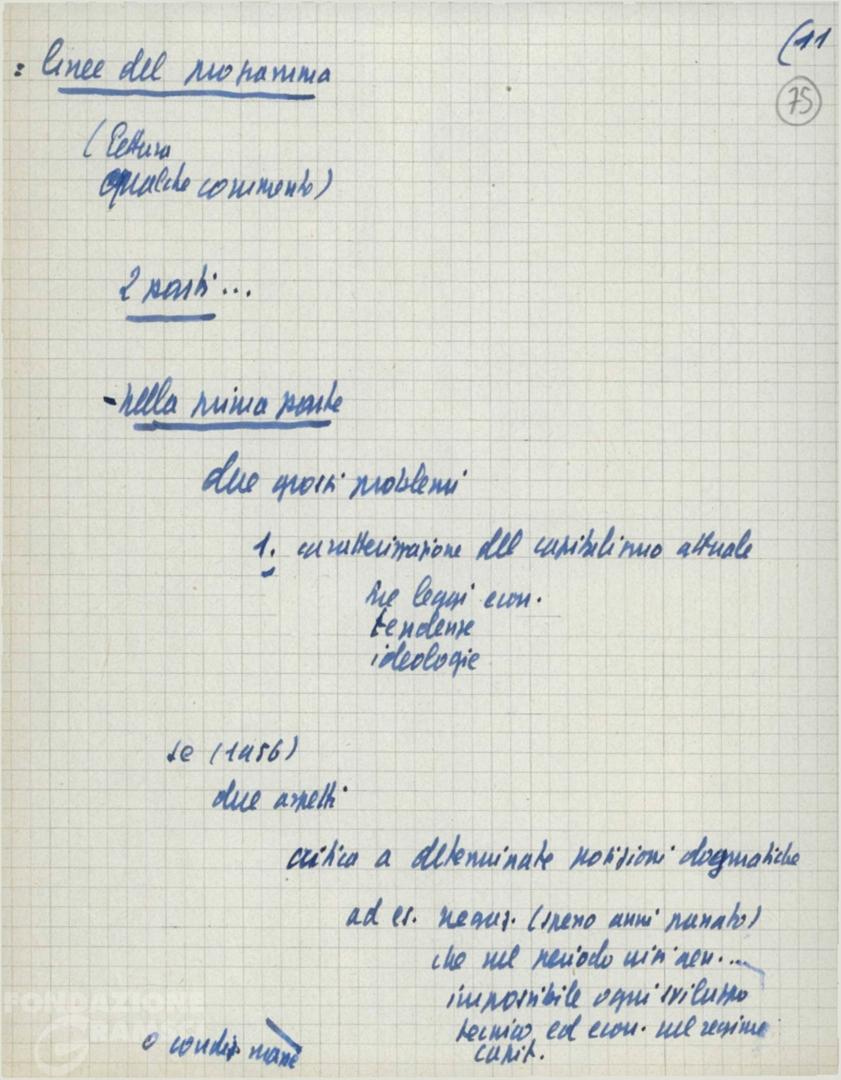 (11
75
: linee del programma
(lettura
qualche commento)
2 parti...
- nella prima parte
due grossi problemi
1. caratterizzazione del capitalismo attuale
sue leggi econ.
tendenze
ideologie
se (1956)
due aspetti
critica a determinate posizioni dogmatiche
ad es. negaz. (spesso anni passato)
che nel periodo crisi gen....
impossibile ogni sviluppo
tecnico ed econ. nel regime
capit.
o condiz.
FONDAZIONE
GRAMSCI